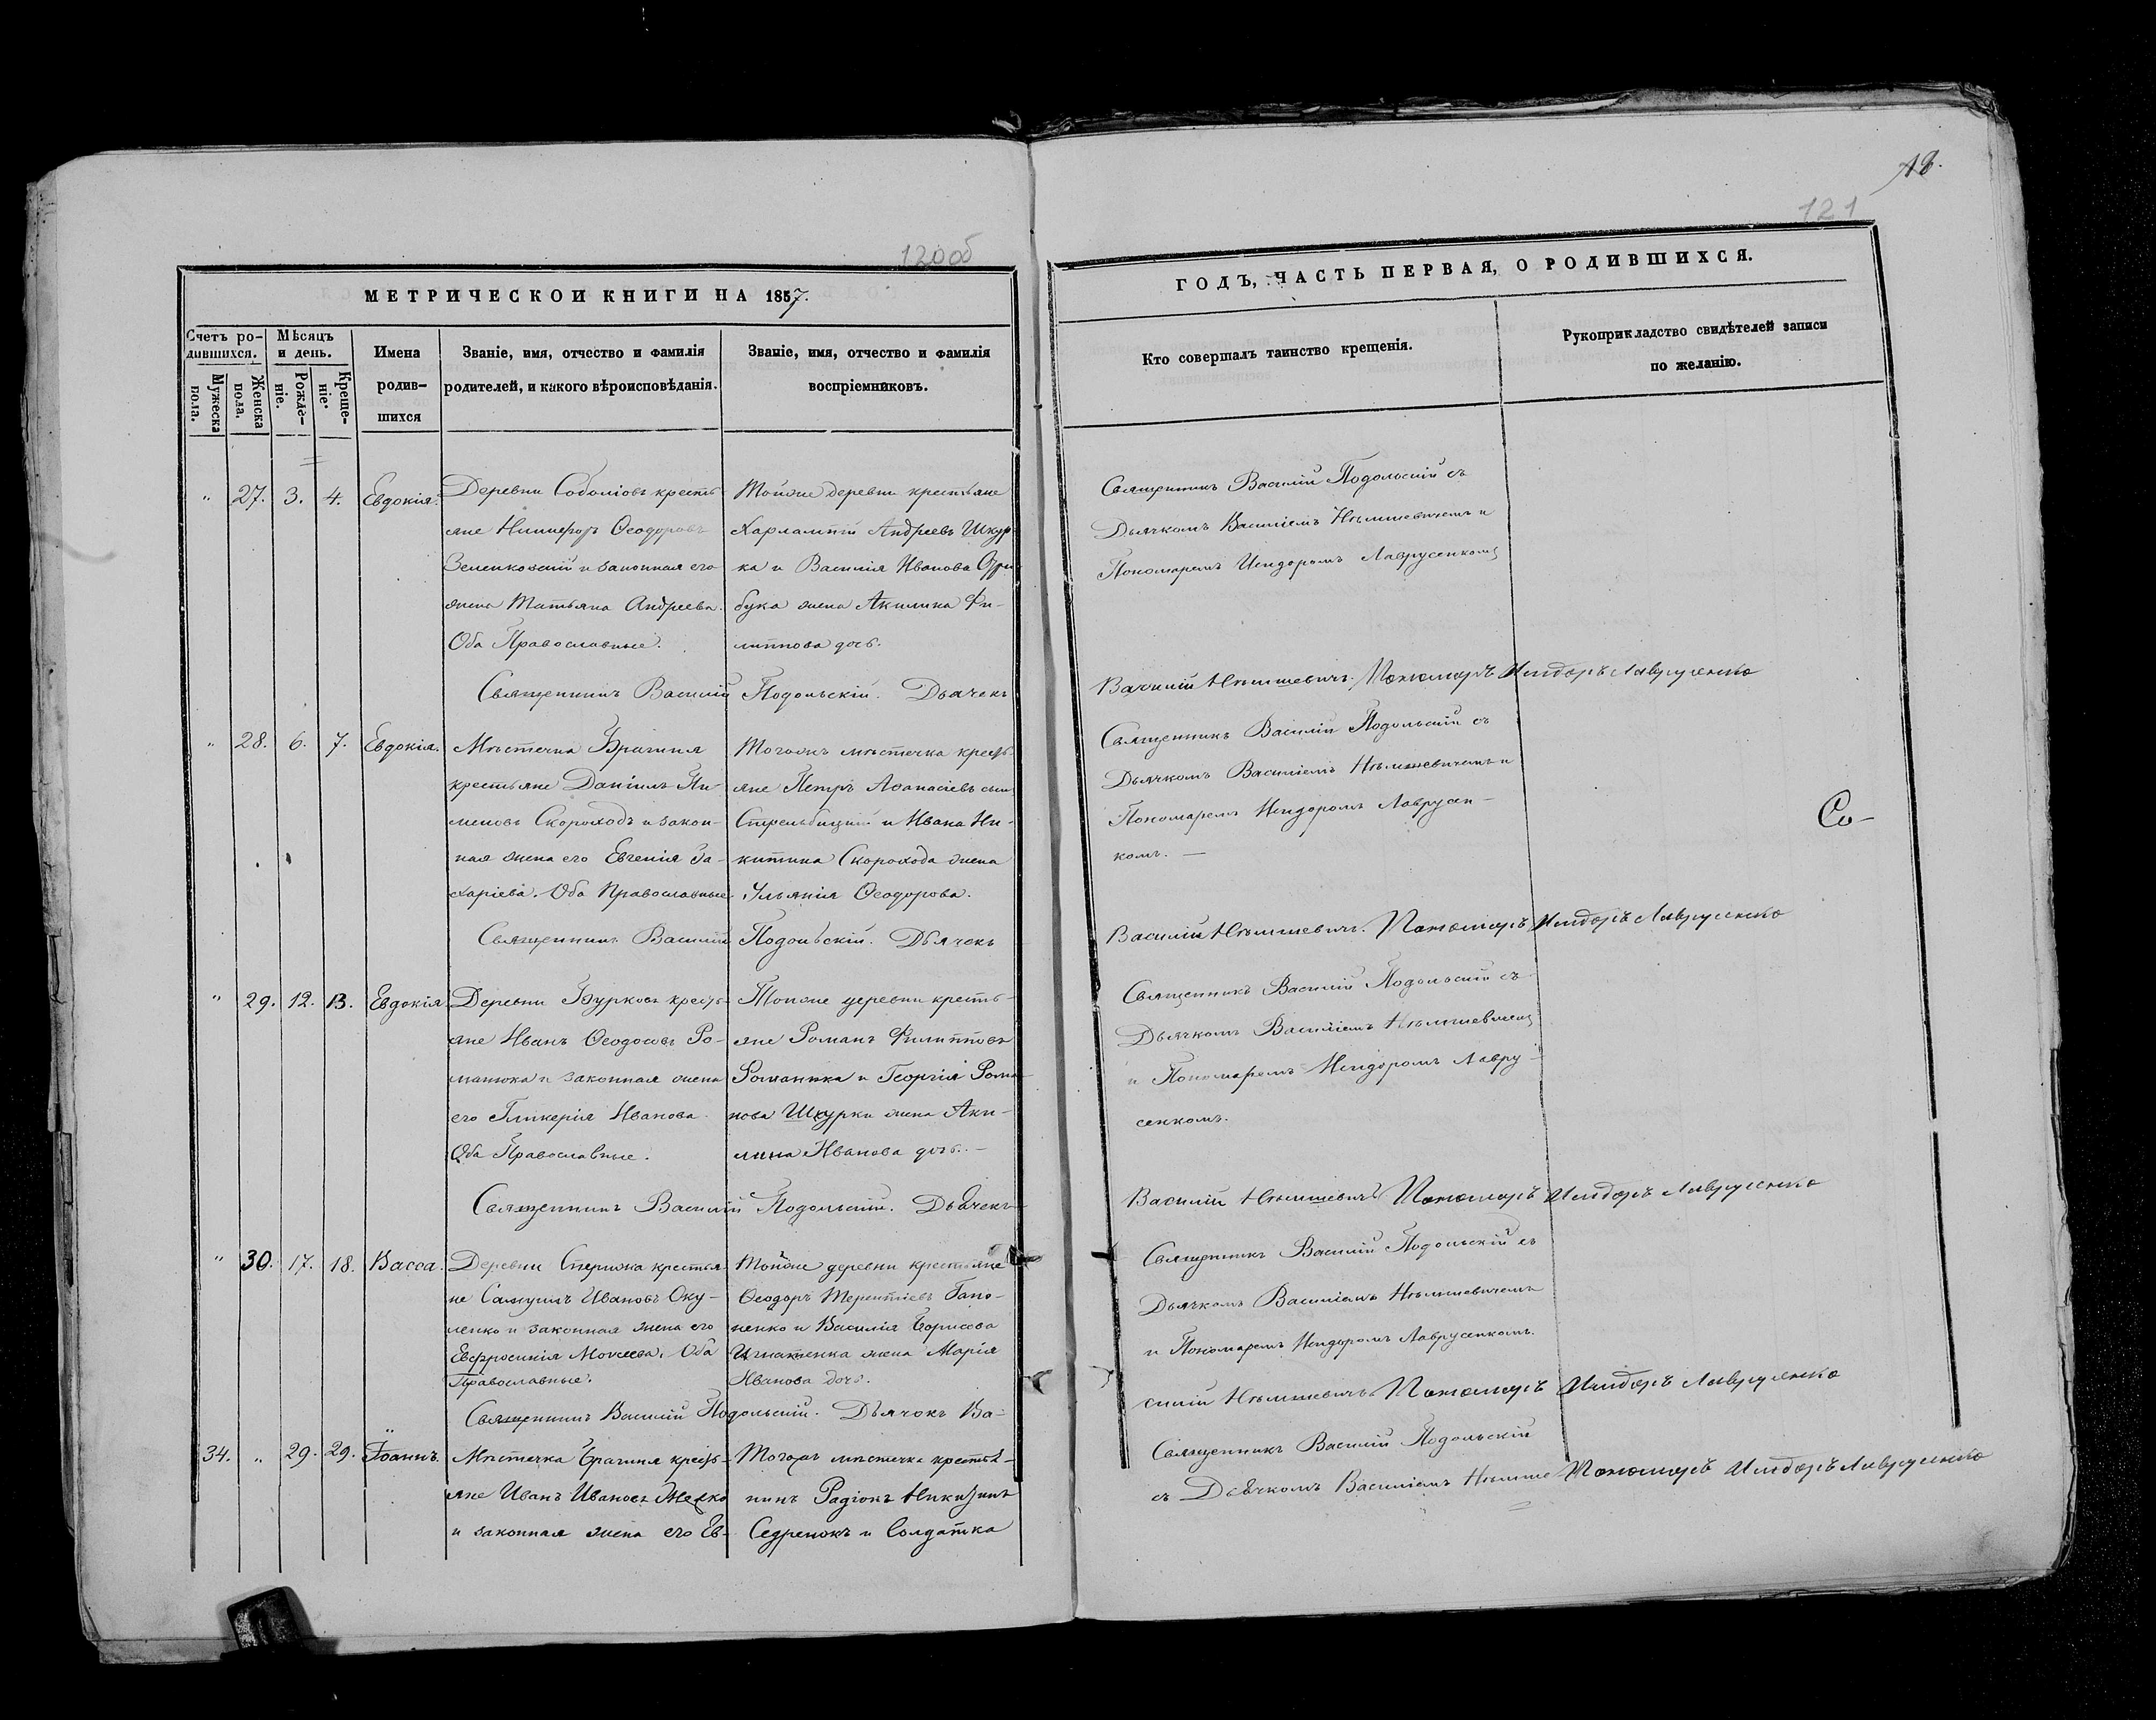 120об
МЕТРИЧЕСКОИ КНИГИ НА 1857.
Счетъ ро-
дившихся.
Мужеска пола.
Женска пола.
Мѣсяцъ
и день.
Рожде-
ніе.
Креще-
ніе.
Имена
родив-
шихся
Званіе, имя, отчество и фамилія
родителей, и какого вѣроисповѣданія.
Званіе, имя, отчество и фамилія
воспріемниковъ.
" 27. 3. 4. Евдокія.
Деревни Соболіовъ кресть
яне Никифоръ Ѳеодоровъ
Зеленковскій и законная его
жена Татьяна Андреева.
Оба Православные.
Тойже деревни крестьяне
Харлампій Андреевъ Шкур-
ка и Василія Иванова
бука жена Акилина Фи-
липпова дочь.
Священникъ Василій Подольскій. Дьячекъ
" 28. 6. 7. Евдокія.
Мѣстечка Брагиня
крестьяне Даніилъ Пи-
меновъ Скороходъ и закон-
ная жена его Евгенія За-
харіева. Оба Православные.
Тогожъ мѣстечка кресть-
яне Петръ Аѳанасіевъ сынъ
Стрельбицкій и Ивана Ни-
китина Скорохода жена
Ульянія Ѳеодорова.
Священникъ Василій Подольскій. Дьячекъ
" 29. 12. 13. Евдокія.
Деревни Бурковъ кресть-
яне Иванъ Ѳеодосовъ Ро-
манюка и законная жена
его Гликерія Иванова.
Оба Православные.
Тойже деревни кресть-
яне Романъ Филипповъ
Романюка и Георгія Рома-
нова Шкурки жена Аки-
лина Иванова дочь. –
Священникъ Василій Подольскій. Дьячекъ
" 30. 17. 18. Васса.
Деревни Стерижа крестья-
не Самуилъ Ивановъ Оку-
ленко и законная жена его
Евфросинія Моисеева. Оба
Православные.
Тойже деревни крестьяне
Ѳеодоръ Терентіевъ Гапо-
ненко и Василія Борисова
Игнатенка жена Марія
Иванова дочь.
Священникъ Василій Подольскій. Дьячокъ Ва-
34. " 29. 29. Іоаннъ.
Мѣстечка Брагиня кресть-
яне Иванъ Ивановъ
и законная жена его Ев-
Тогожъ мѣстечка крестья-
нинъ Радіонъ Никитинъ
Седренокъ и Солдатка
18.
121
ГОДЪ, ЧАСТЬ ПЕРВАЯ, О РОДИВШИХСЯ.
Кто совершалъ таинство крещенія.
Рукоприкладство свидѣтелей записи
по желанію.
Священникъ Василій Подольскій съ
Дьячкомъ Василіемъ Нѣмшевичемъ и
Пономаремъ Исидоромъ Лаврусенкомъ
Василій Нѣмшевичъ. Пономарь Исидоръ Лаврусенко
Священникъ Василій Подольскій съ
Дьячкомъ Василіемъ Нѣмшевичемъ и
Пономаремъ Исидоромъ Лаврусен-
комъ. —
Со-
Василій Нѣмшевичъ. Пономарь Исидоръ Лаврусенко
Священникъ Василій Подольскій съ
Дьячкомъ Василіемъ Нѣмшевичемъ
и Пономаремъ Исидоромъ Лавру-
сенкомъ.
Василій Нѣмшевичъ Пономарь Исидоръ Лаврусенко
Священникъ Василій Подольскій съ
Дьячкомъ Василіемъ Нѣмшевичемъ
и Пономаремъ Исидоромъ Лаврусенкомъ.
силій Нѣмшевичъ Пономарь Исидоръ Лаврусенко
Священникъ Василій Подольскій
съ Дьячкомъ Василіемъ Нѣмше Пономарь Исидоръ Лаврусенко